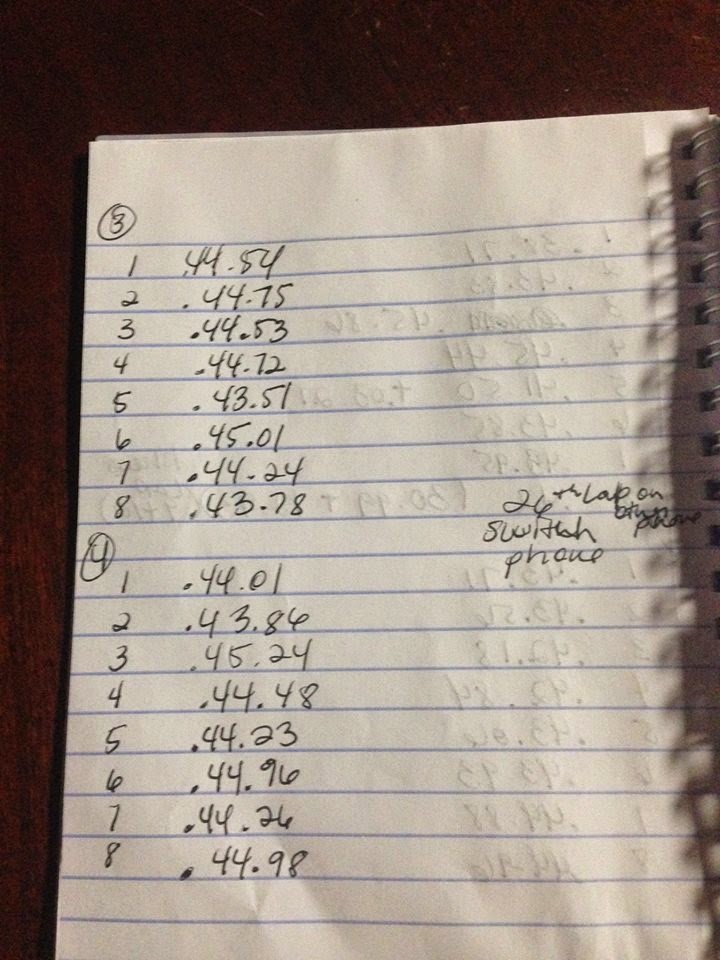 3
1 .44.54
2 .44.75
3 .44.53
4 .44.72
5 .43.51
6 .45.01
7 .44.24
8 .43.78
26th Lap on
phone
switch
phone
4
1 .44.01
2 .43.86
3 .45.24
4 .44.48
5 .44.23
6 .44.96
7 .44.26
8 .44.98